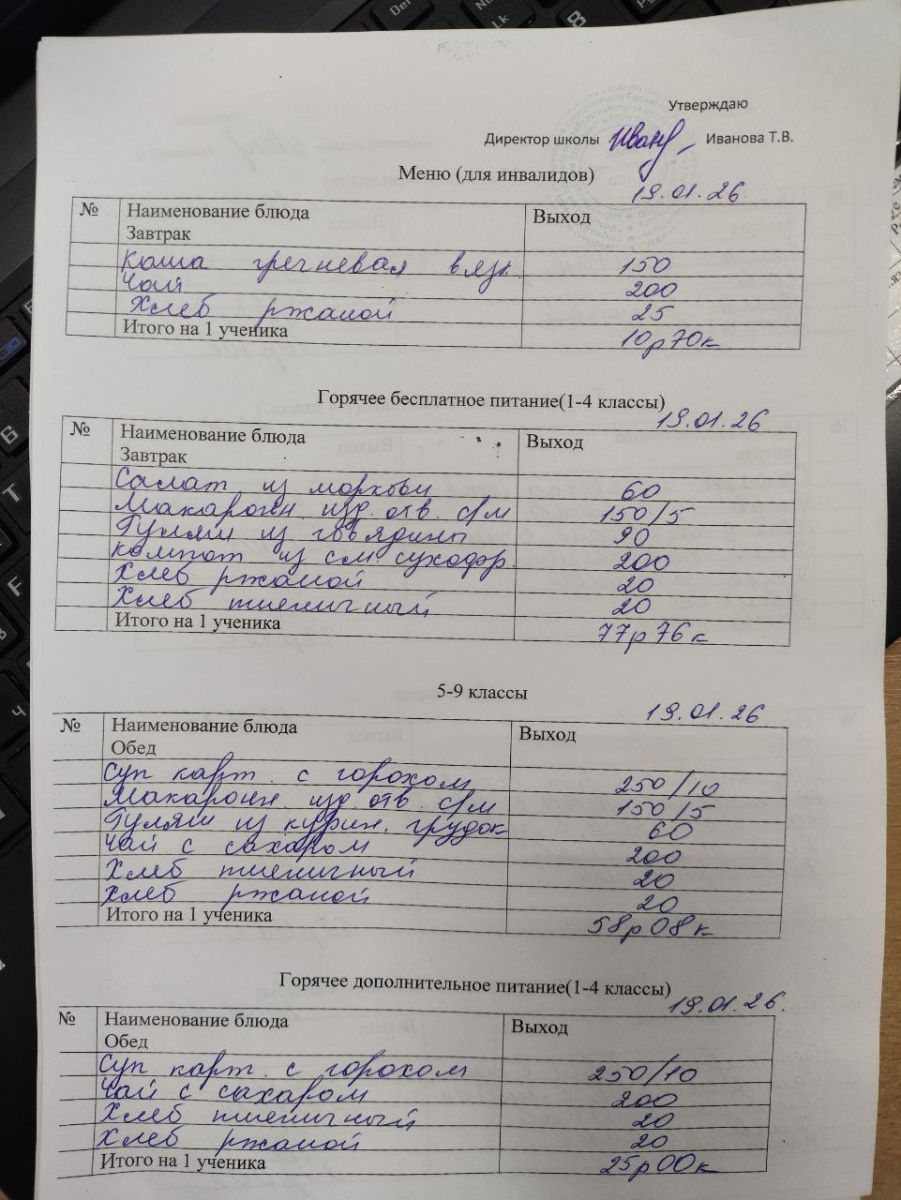 Утверждаю
Директор школы Иванова Т.В.
Меню (для инвалидов)
19.01.26
№ Наименование блюда Выход
Завтрак
Каша гречневая вязк 150
Чай 200
Хлеб ржаной 25
Итого на 1 ученика 10р70к
Горячее бесплатное питание(1-4 классы)
19.01.26
№ Наименование блюда Выход
Завтрак
Салат из моркови 60
Макарон изд. отв. с/м 150/5
Гуляш из говядины 90
компот из см сухофр. 200
Хлеб ржаной 20
Хлеб пшеничный 20
Итого на 1 ученика 77р76к
5-9 классы
19.01.26
№ Наименование блюда Выход
Обед
Суп карт. с горохом 250/10
Макарон изд. отв. с/м 150/5
Гуляш из курин. грудок 60
Чай с сахаром 200
Хлеб пшеничный 20
Хлеб ржаной 20
Итого на 1 ученика 58р08к
Горячее дополнительное питание(1-4 классы)
19.01.26.
№ Наименование блюда Выход
Обед
Суп карт. с горохом 250/10
Чай с сахаром 200
Хлеб пшеничный 20
Хлеб ржаной 20
Итого на 1 ученика 25р00к